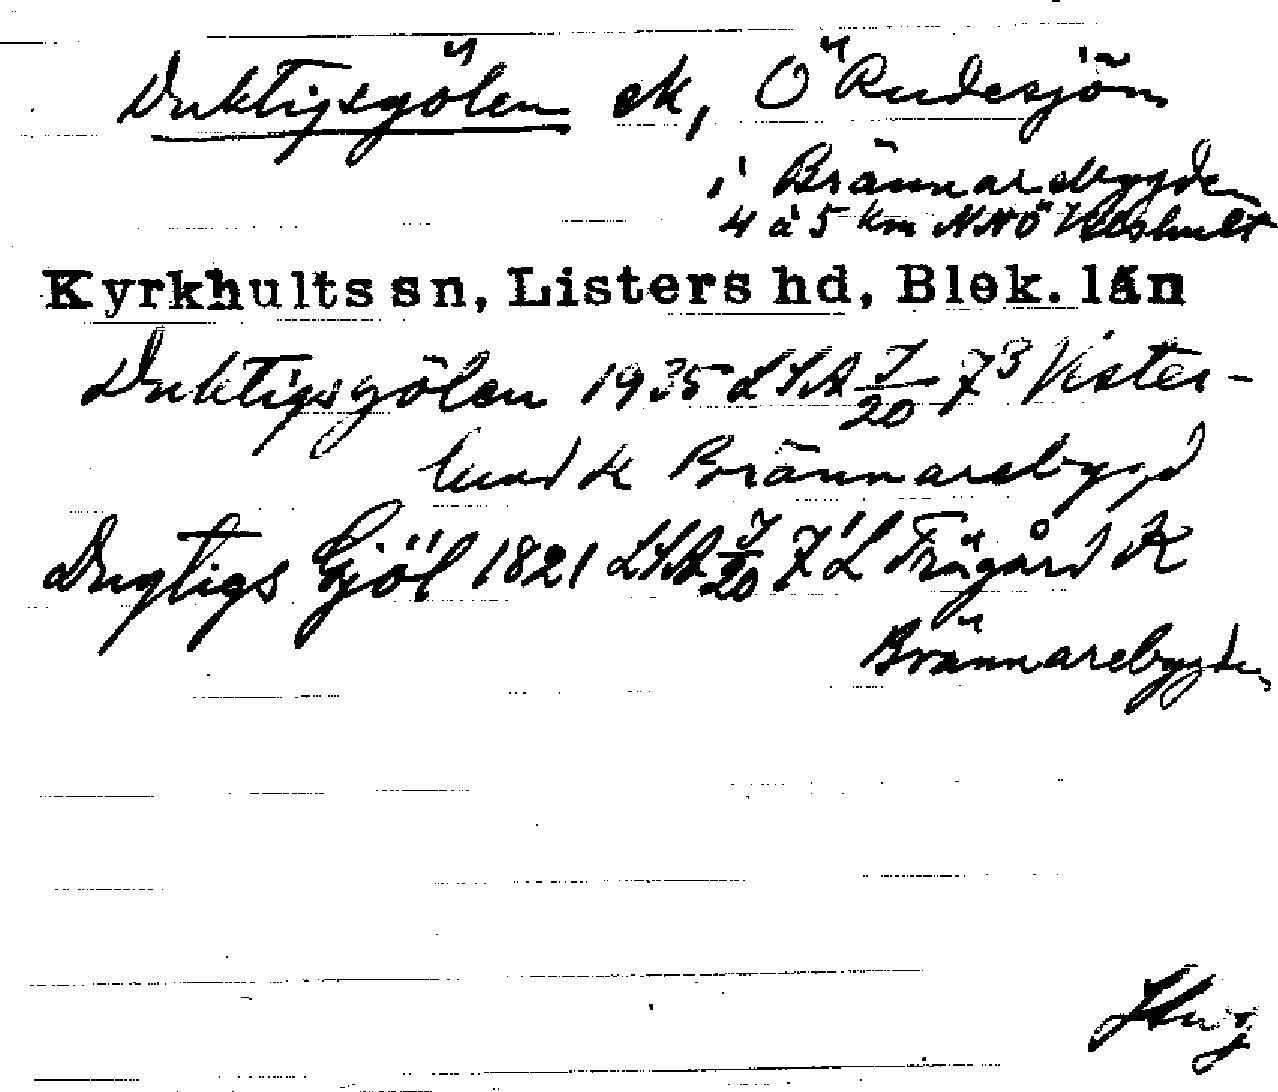 Duktigsgölen ek, Ö Rudesjön
i Brännarebygden
4 à 5 km NNÖ Vilshult
Kyrkhults sn, Listers hd, Blek. län
Duktigsgölen 1935 LSA 7/20 73 Vister-
lund k Brännarebygd
Dugtigs Gjöl 1821 LSA 7/20 Z'L Trägård K
Brännarebygden